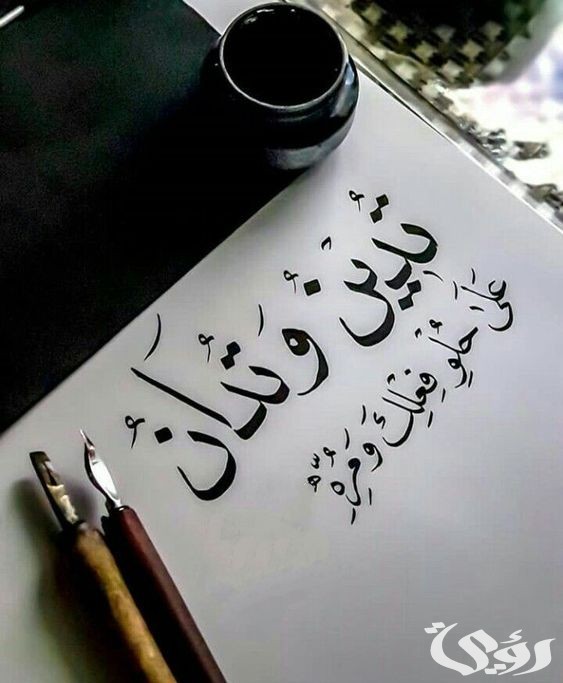 تُدِينُ وَتُدَانُ
عَلَىَ حُلْوِ فِعْلِكَ وَمُرِّهِ
رؤية